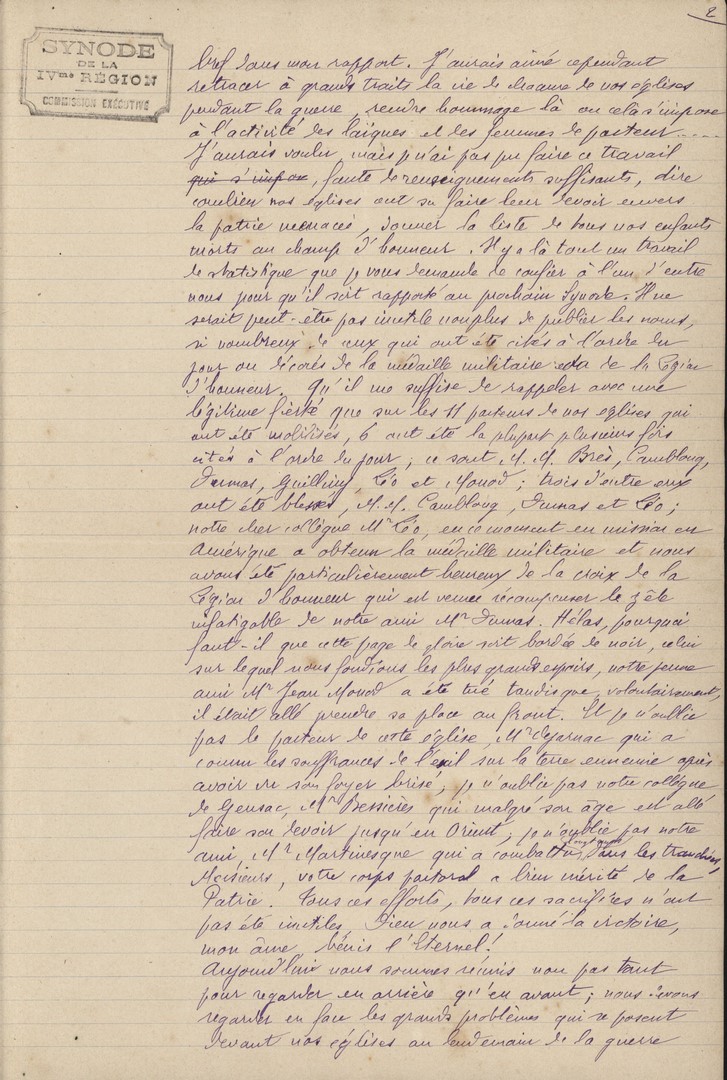 2
SYNODE
DE LA
IVme RÉGION
COMMISSION EXÉCUTIVE
bref dans mon rapport. J'aurais aimé cependant
retracer à grands traits la vie de chacune de vos églises
pendant la guerre, rendre hommage là où cela s'impose
à l'activité des laïques et des femmes de pasteur.....
J'aurais voulu, mais je n'ai pas pu faire ce travail
qui s'impose, faute de renseignements suffisants, dire
combien nos églises ont su faire leur devoir envers
la patrie menacée, donner la liste de tous nos enfants
morts au champ d'honneur. Il y a là tout un travail
de statistique que je vous demande de confier à l'un d'entre
nous pour qu'il soit rapporté au prochain Synode. Il ne
serait peut-être pas inutile non plus de publier les noms,
si nombreux de ceux qui ont été cités à l'ordre du
jour ou décorés de la médaille militaire ou de la Légion
d'honneur. Qu'il me suffise de rappeler avec une
légitime fierté que sur les 11 pasteurs de nos églises qui
ont été mobilisés, 6 ont été la plupart plusieurs fois
cités à l'ordre du jour; ce sont M.M. Brès, Camblong,
Dumas, Guilliny, Léo et Monod; trois d'entre eux
ont été blessés, M.M. Camblong, Dumas et Léo;
notre cher collègue Mr Léo, en ce moment en mission en
Amérique a obtenu la médaille militaire et nous
avons été particulièrement heureux de la croix de la
Légion d'honneur qui est venue récompenser le zèle
infatigable de notre ami Mr Dumas. Hélas, pourquoi
faut-il que cette page de gloire soit bordée de noir, celui
sur lequel nous fondions les plus grands espoirs, notre jeune
ami Mr Jean Monod a été tué tandis que, volontairement,
il était allé prendre sa place au front. Et je n'oublie
pas le pasteur de cette église, Mr Lejarnac qui a
connu les souffrances de l'exil sur la terre ennemie après
avoir vu son foyer brisé; je n'oublie pas notre collègue
de Gensac, Mr Bessières qui malgré son âge est allé
faire son devoir jusqu'en Orient; je n'oublie pas notre
ami, Mr Martinesque qui a combattu longtemps dans les tranchées
Messieurs, votre corps pastoral a bien mérité de la
Patrie. Tous ces efforts, tous ces sacrifices n'ont
pas été inutiles. Dieu nous a donné la victoire,
mon âme, bénis l'Eternel!
Aujourd'hui nous sommes réunis non pas tant
pour regarder en arrière qu'en avant; nous devons
regarder en face les grands problèmes qui se posent
devant nos églises au lendemain de la guerre